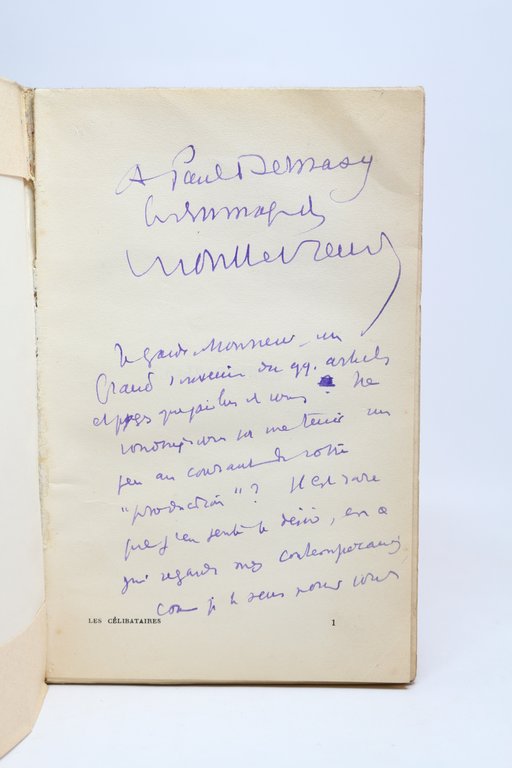 A Paul Dermasy
hommage de
Montherlant
Je garde, Monsieur, un
grand souvenir de qq. articles
et pages que j'ai lus de vous. Ne
voudriez-vous me tenir un
peu au courant de votre
"production"? Il est rare
que j'en sente le désir, en ce
qui regarde mes contemporains
comme je le sens pour vous
LES CÉLIBATAIRES 1